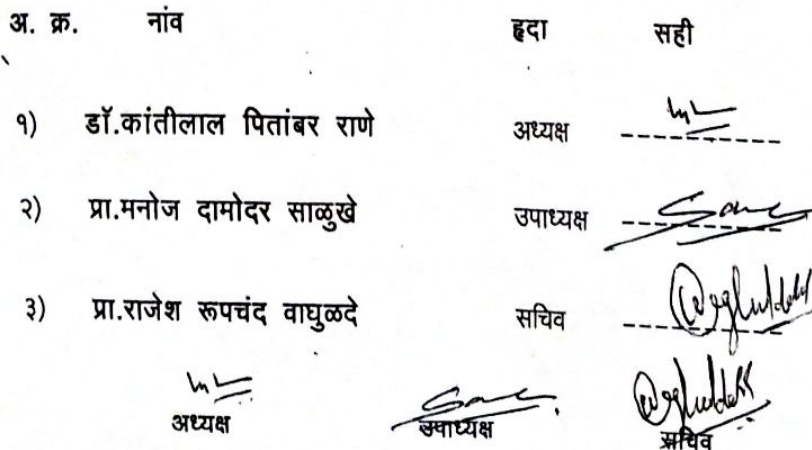 अ. क्र. नांव हृदा सही
१) डॉ.कांतीलाल पितांबर राणे अध्यक्ष
२) प्रा.मनोज दामोदर साळुखे उपाध्यक्ष
३) प्रा.राजेश रूपचंद वाघुळदे सचिव
अध्यक्ष उपाध्यक्ष सचिव